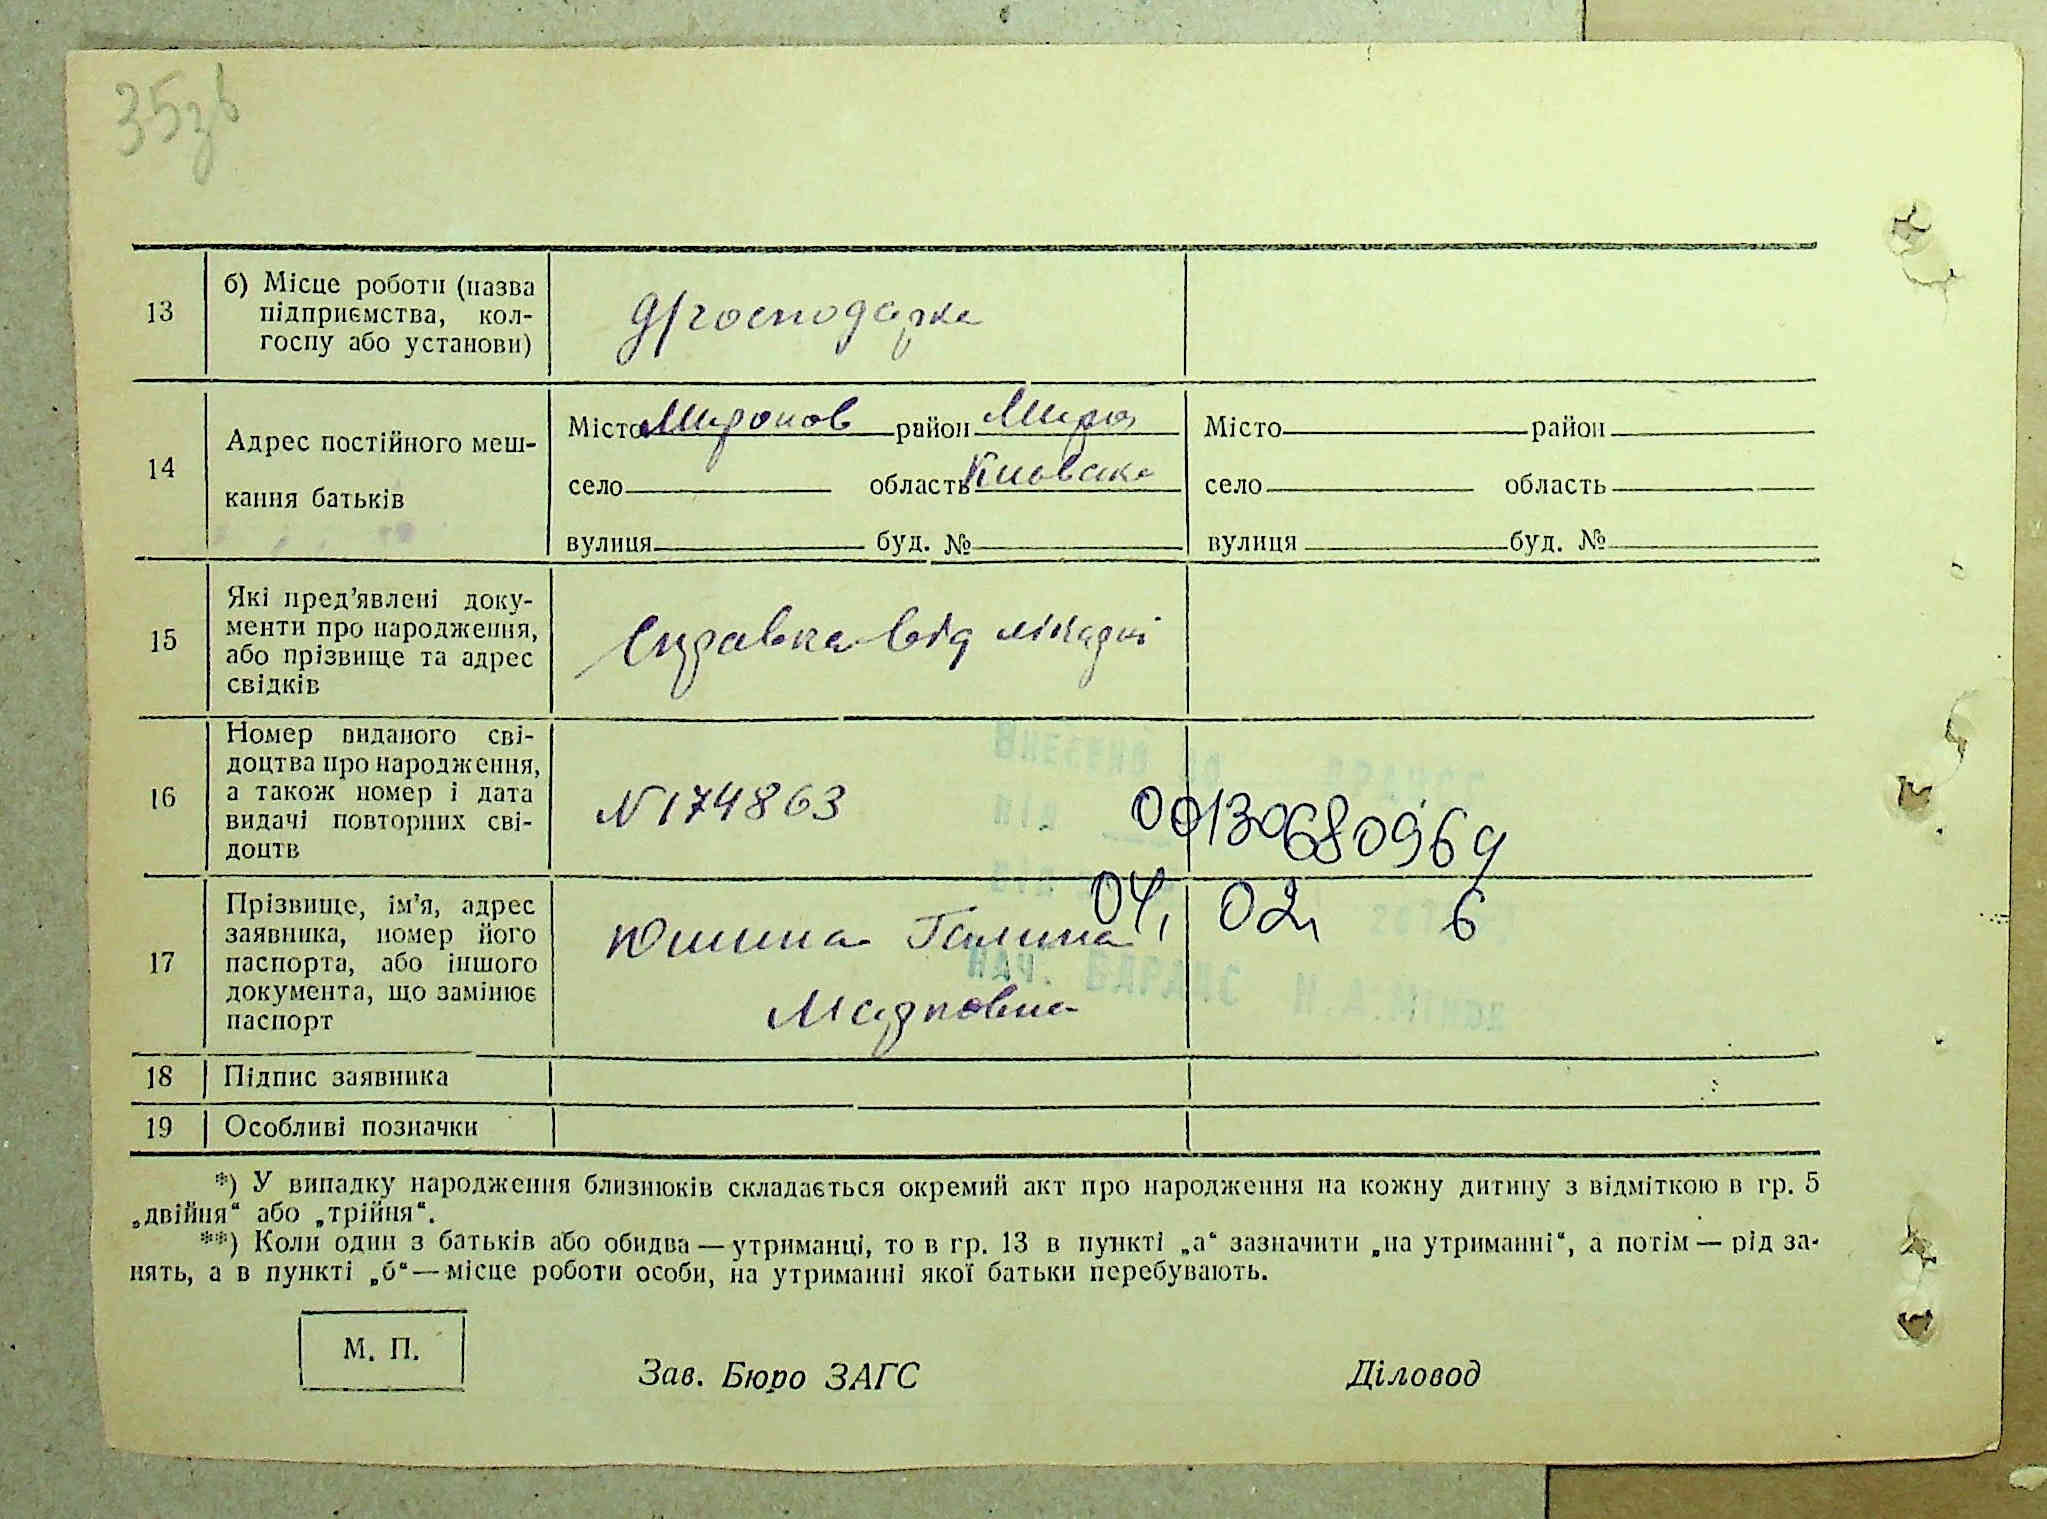 35зв
13
б) Місце роботи (назва
підприємства, кол-
госпу або установи)
д/господарка
14
Адрес постійного меш-
кання батьків
Місто Миронов район Миро
село область Київська
вулиця буд. №
Місто район
село область
вулиця буд. №
15
Які пред’явлені доку-
менти про народження,
або прізвище та адрес
свідків
Справка від лікарні
16
Номер виданого сві-
доцтва про народження,
а також номер і дата
видачі повторних сві-
доцтв
N 174863
Внесено до ДРАЦСГ
00130680969
17
Прізвище, ім’я, адрес
заявника, номер його
паспорта, або іншого
документа, що замінює
паспорт
Юшина Галина
Марковна
04, 02, 6
Нач. ВДРАЦС Н.А.
18
Підпис заявника
19
Особливі позначки
*) У випадку народження близнюків складається окремий акт про народження на кожну дитину з відміткою в гр. 5
„двійня“ або „трійня“.
**) Коли один з батьків або обидва — утриманці, то в гр. 13 в пункті „а“ зазначити „на утриманні“, а потім — рід за-
нять, а в пункті „б“ — місце роботи особи, на утриманні якої батьки перебувають.
М. П.
Зав. Бюро ЗАГС
Діловод